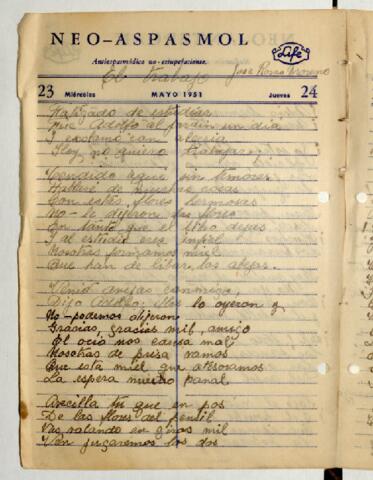 NEO-ASPASMOL
Life
Antiespasmódico no-estupefaciente.
El trabajo Jose Rosas Moreno
23 Miércoles MAYO 1951 Jueves 24
de estudiar
Fue Adolfo al jardin un dia
I exclamo con alegria
Hoy no quiero trabajar
aqui sin temores
Hablare de
Con estas flores hermosas
No- le dijeron las flores
En tanto que el libro dejas
I al estudio eres infiel
Nosotras formamos miel
Que han de libar las abejas.
Venid abejas conmigo
Dijo Adolfo: Ellas lo oyeron y
No-podemos dijeron
Gracias, gracias mil, amigo
El ocio nos causa mal
Nosotras de prisa vamos
Que esta miel que atesoramos
La espera nuestro panal
Avecilla tu que en pos
De las flores del pensil
Vas volando en giros mil
Ven jugaremos los dos